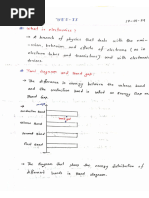 What is electronics?
A branch of physics that deals with the emi-
ssion, behavior and effects of electrons (as in
electron tubes and transistors) and with electronic
devices.
Band diagram and band gap:
The difference in energy between the valence band
and conduction band is called an energy gap or
band gap.
conduction band
band gap
valence band
First band
The diagram that shows the energy distribution of
different bands is band diagram.